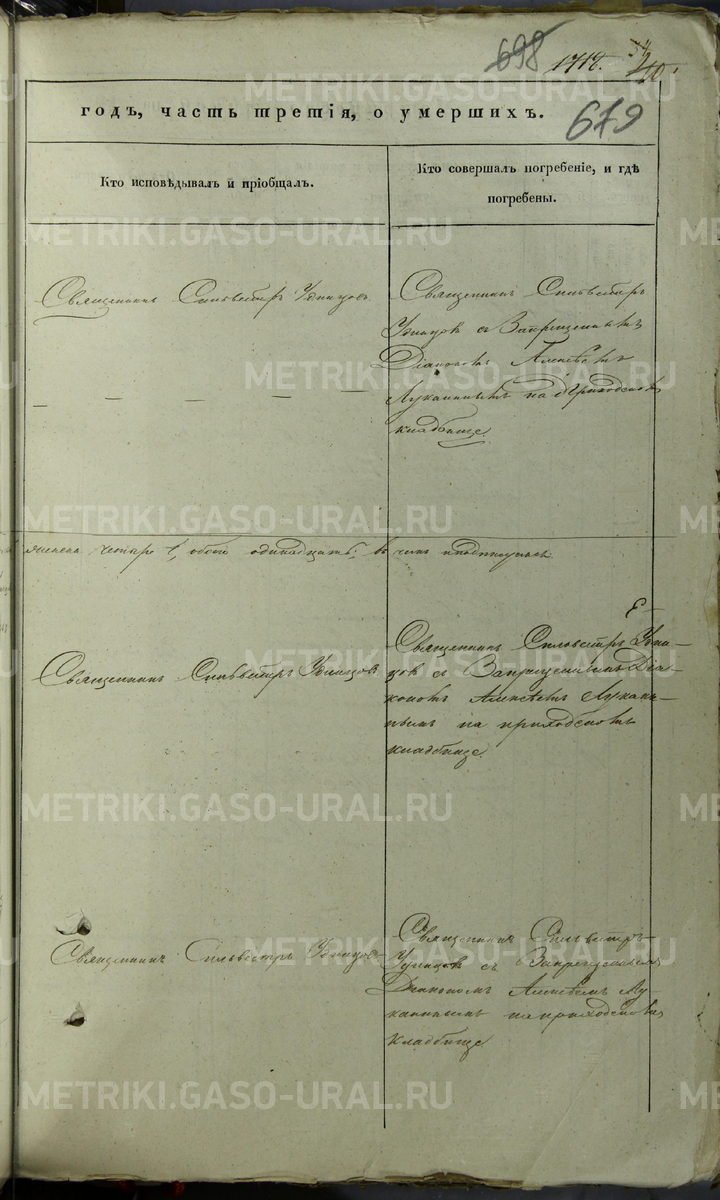 698 1717. 210.
679
годъ, часть третія, о умершихъ.
Кто исповѣдывалъ и пріобщалъ.
Кто совершалъ погребеніе, и гдѣ
погребены.
Священникъ Сильвестръ Удинцовъ
Священникъ Сильвестръ
Удинцов съ Запрещеннымъ
Діакономъ Алексѣемъ
Луканинымъ на приходскомъ
кладбище.
женска четыре, обоего одинадцать; въ чемъ и подпишемся
Священникъ Сильвестръ Удинцов
Священникъ Сильвестръ Удин-
цов съ Запрещеннымъ Діа-
кономъ Алексѣемъ Лукани-
нымъ на приходскомъ
кладбище.
Священникъ Сильвестръ Удинцов
Священникъ Сильвестръ
Удинцов съ Запрещеннымъ
Діакономъ Алексѣемъ Лу-
канинымъ на приходскомъ
кладбище
METRIKI.GASO-URAL.RU